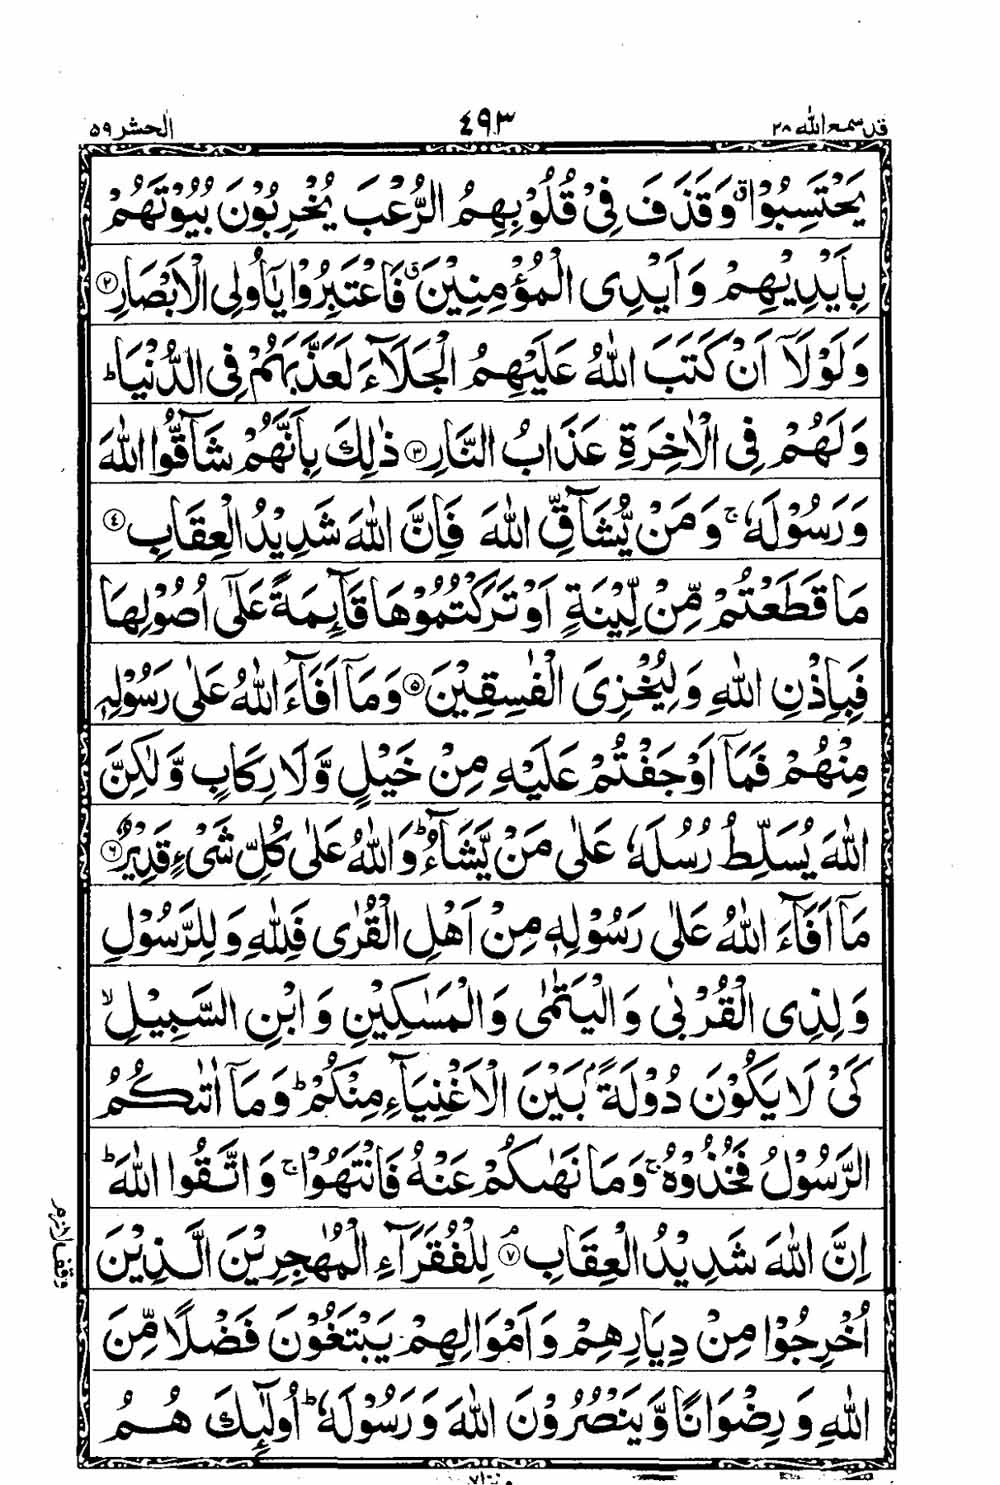 قد سمع الله ٢٨
٤٩٣
الحشر ٥٩
يَحْتَسِبُوْا ۗ وَقَذَفَ فِيْ قُلُوْبِهِمُ الرُّعْبَ يُخْرِبُوْنَ بُيُوْتَهُمْ
بِاَيْدِيْهِمْ وَاَيْدِى الْمُؤْمِنِيْنَ ۗ فَاعْتَبِرُوْا يٰۤاُولِى الْاَبْصَارِ ②
وَلَوْلَاۤ اَنْ كَتَبَ اللّٰهُ عَلَيْهِمُ الْجَلَآءَ لَعَذَّبَهُمْ فِى الدُّنْيَا ؕ
وَلَهُمْ فِى الْاٰخِرَةِ عَذَابُ النَّارِ ③ ذٰلِكَ بِاَنَّهُمْ شَآقُّوا اللّٰهَ
وَرَسُوْلَهٗ ۚ وَمَنْ يُّشَآقِّ اللّٰهَ فَاِنَّ اللّٰهَ شَدِيْدُ الْعِقَابِ ④
مَا قَطَعْتُمْ مِّنْ لِّيْنَةٍ اَوْ تَرَكْتُمُوْهَا قَآىِٕمَةً عَلٰۤى اُصُوْلِهَا
فَبِاِذْنِ اللّٰهِ وَلِيُخْزِىَ الْفٰسِقِيْنَ ⑤ وَمَاۤ اَفَآءَ اللّٰهُ عَلٰى رَسُوْلِهٖ
مِنْهُمْ فَمَاۤ اَوْجَفْتُمْ عَلَيْهِ مِنْ خَيْلٍ وَّلَا رِكَابٍ وَّلٰكِنَّ
اللّٰهَ يُسَلِّطُ رُسُلَهٗ عَلٰى مَنْ يَّشَآءُ ؕ وَاللّٰهُ عَلٰى كُلِّ شَىْءٍ قَدِيْرٌ ⑥
مَاۤ اَفَآءَ اللّٰهُ عَلٰى رَسُوْلِهٖ مِنْ اَهْلِ الْقُرٰى فَلِلّٰهِ وَلِلرَّسُوْلِ
وَلِذِى الْقُرْبٰى وَالْيَتٰمٰى وَالْمَسٰكِيْنِ وَابْنِ السَّبِيْلِ ۙ
كَىْ لَا يَكُوْنَ دُوْلَةًۢ بَيْنَ الْاَغْنِيَآءِ مِنْكُمْ ؕ وَمَاۤ اٰتٰىكُمُ
الرَّسُوْلُ فَخُذُوْهُ ۚ وَمَا نَهٰىكُمْ عَنْهُ فَانْتَهُوْا ۚ وَاتَّقُوا اللّٰهَ ؕ
اِنَّ اللّٰهَ شَدِيْدُ الْعِقَابِ ۘ ⑦ لِلْفُقَرَآءِ الْمُهٰجِرِيْنَ الَّذِيْنَ
وقف لازم
اُخْرِجُوْا مِنْ دِيَارِهِمْ وَاَمْوَالِهِمْ يَبْتَغُوْنَ فَضْلًا مِّنَ
اللّٰهِ وَرِضْوَانًا وَّيَنْصُرُوْنَ اللّٰهَ وَرَسُوْلَهٗ ؕ اُولٰٓىِٕكَ هُمُ